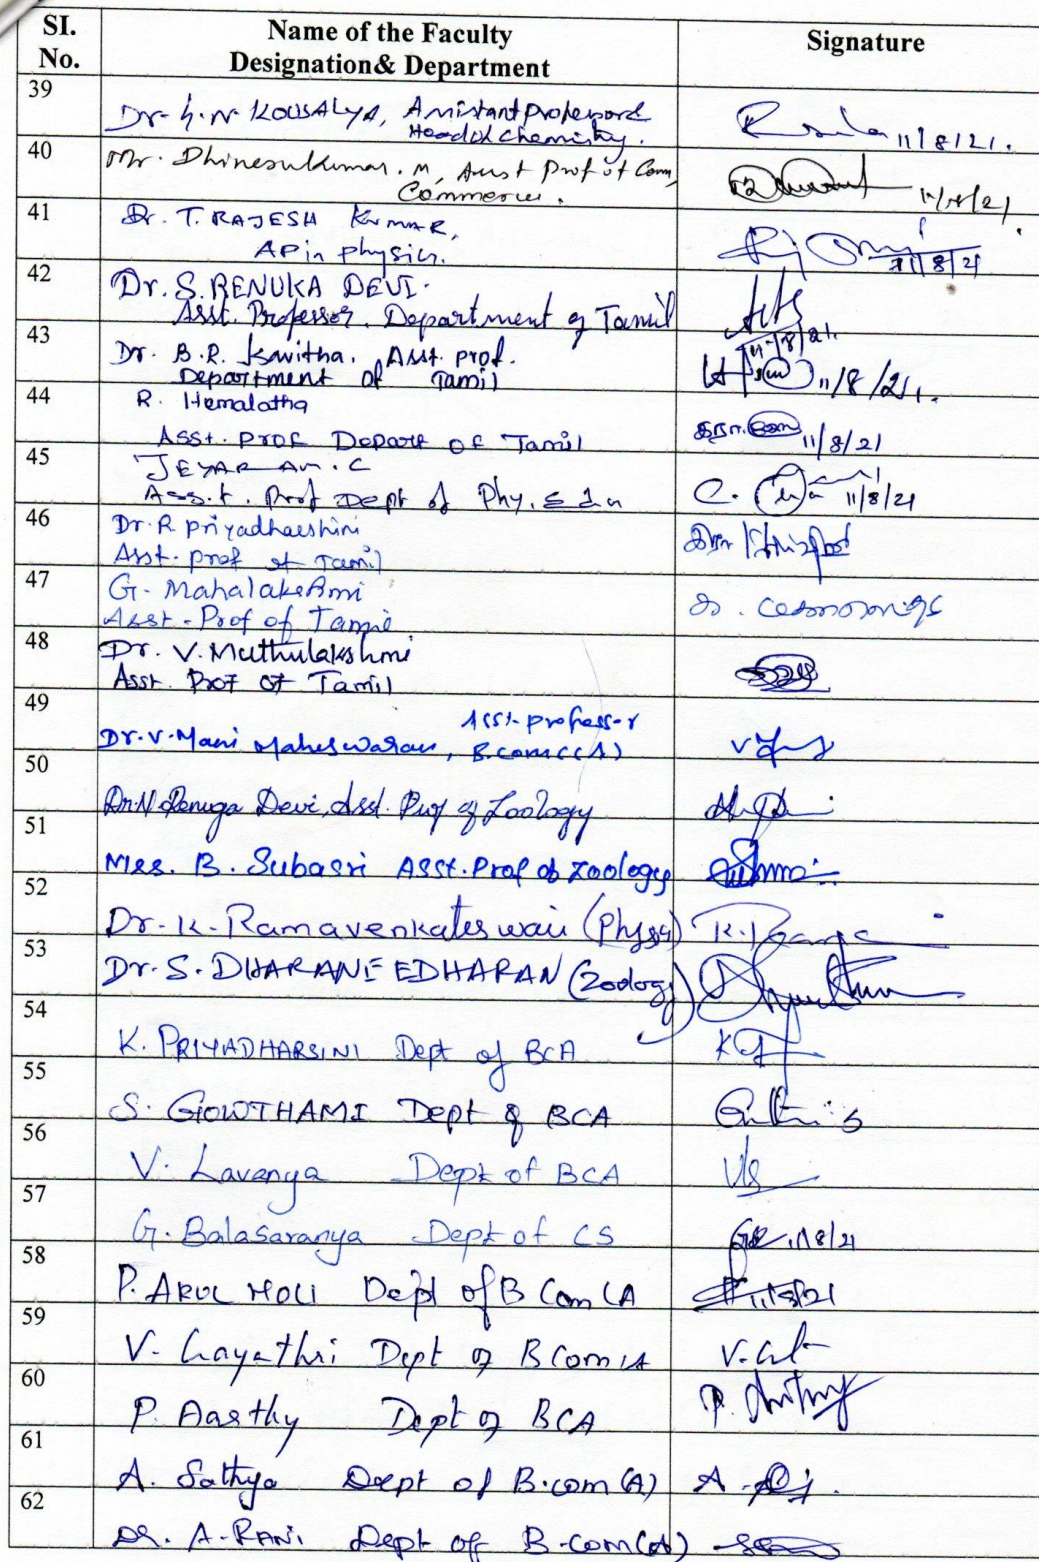 SI. No.
Name of the Faculty
Designation& Department
Signature
39
Dr. G.N. KOUSALYA, Assistant Professor &
Head of Chemistry.
11/8/21.
40
Mr. Dhineshkumar. M, Asst Prof of Com,
Commerce.
11/8/21.
41
Dr. T. RAJESH KUMAR,
AP in physics.
11/8/21
42
Dr. S. RENUKA DEVI.
Asst. Professor. Department of Tamil
11/8/21.
43
Dr. B.R. Kavitha. Asst. prof.
Department of Tamil
11/8/21.
44
R. Hemalatha
Asst. Prof Depart of Tamil
11/8/21
45
JEYARAM. C
Ass.t. Prof Dept of Phy. Edn
C. 11/8/21
46
Dr. R. Priyadharshini
Asst. prof of Tamil
47
G. Mahalakshmi
Asst. Prof of Tamil
48
Dr. V. Muthulakshmi
Asst. Prof of Tamil
49
Asst. professor
Dr. V. Mani Maheswaran, B.com(CA)
50
Dr. N. Renuga Devi, Asst. Prof of Zoology
51
Mrs. B. Subasri Asst. Prof of Zoology
52
Dr. K. Ramavenkateswari (Physics)
53
Dr. S. DHARANEEDHARAN (Zoology)
54
K. PRIYADHARSINI Dept of BCA
55
S. GOWTHAMI Dept of BCA
56
V. Lavanya Dept of BCA
57
G. Balasaranya Dept of CS
11/8/21
58
P. ARUL MOLI Dept of B Com CA
11/8/21
59
V. Gayathri Dept of B Com CA
60
P. Aarthy Dept of BCA
61
A. Sathya Dept of B.com (A)
62
Dr. A. RANI Dept of B.com(A)